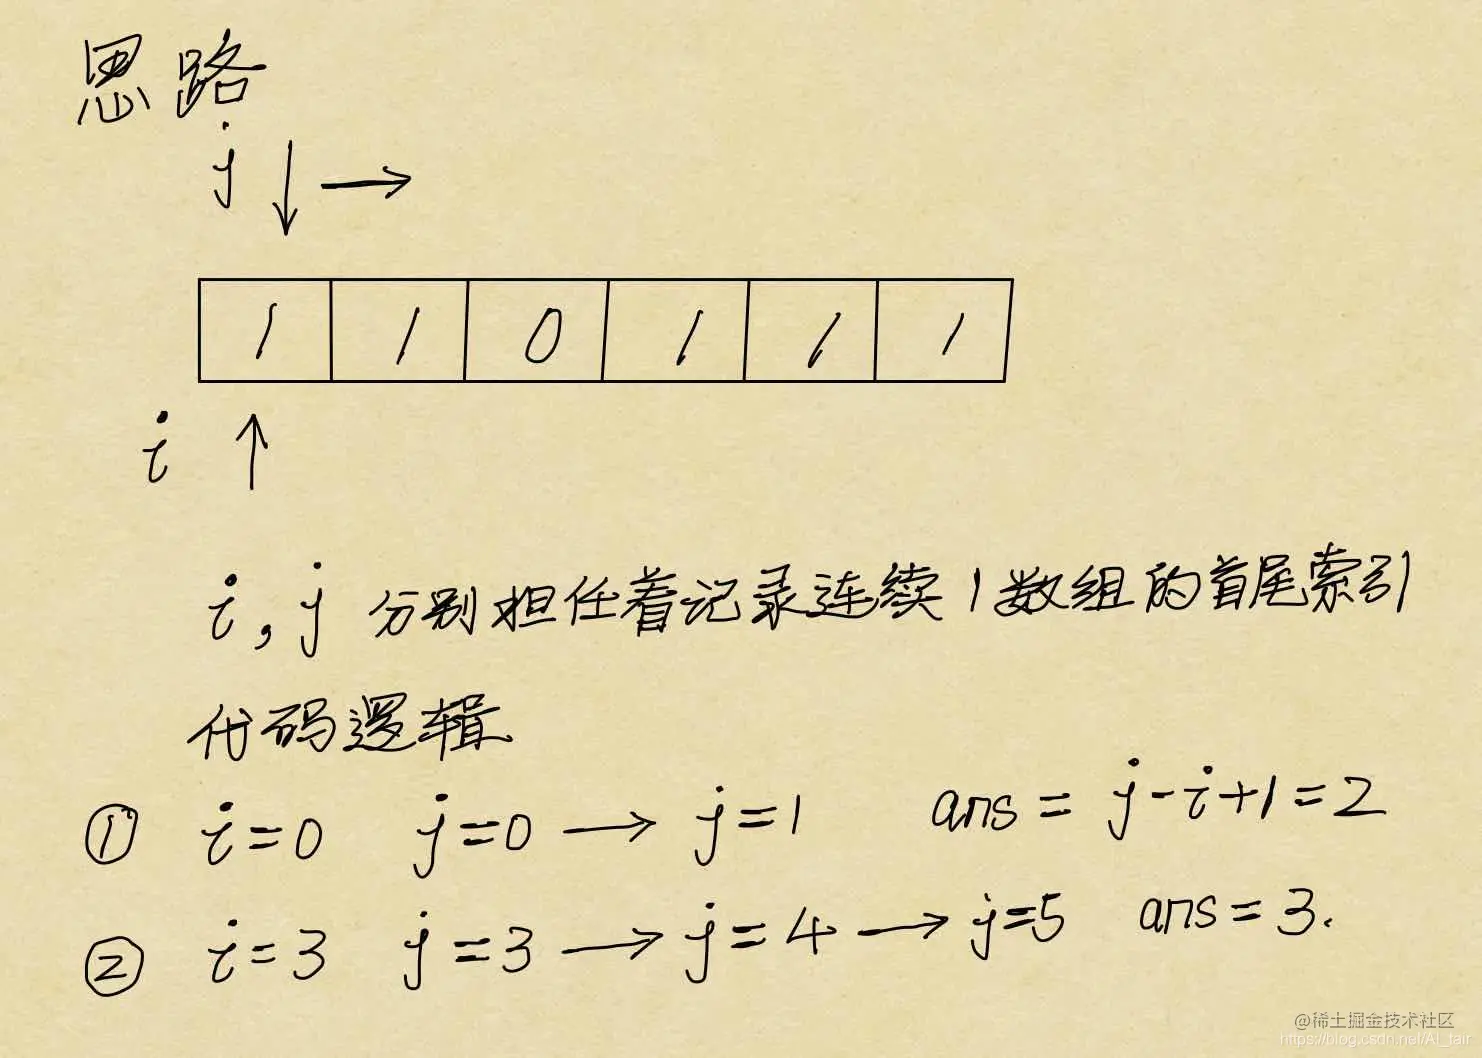 思路
j
1 1 0 1 1 1
i
i, j 分别担任着记录连续1数组的首尾索引
代码逻辑
① i=0 j=0 → j=1 ans = j-i+1=2
② i=3 j=3 → j=4 → j=5 ans=3.
@稀土掘金技术社区
https://blog.csdn.net/AI_fair